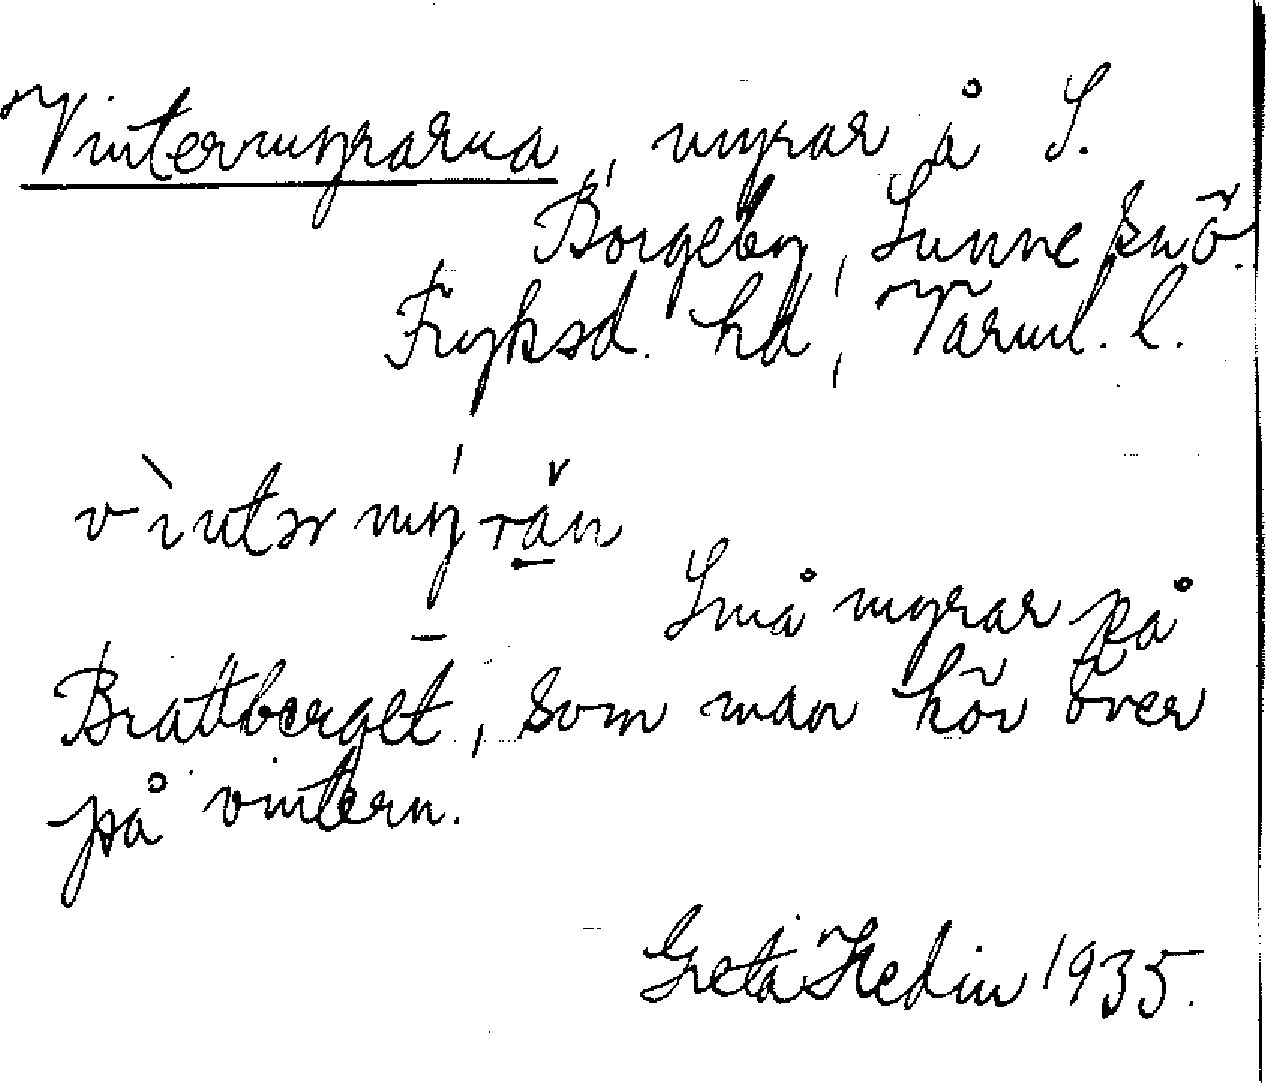 Vintermyrarna, myrar å S.
Borgeby, Sunne sn ö.
Fryksd. hd, Värml. l.
vìntər mý răn
Små myrar på
Brattberget, som man kör över
på vintern.
Greta Hedin 1935.